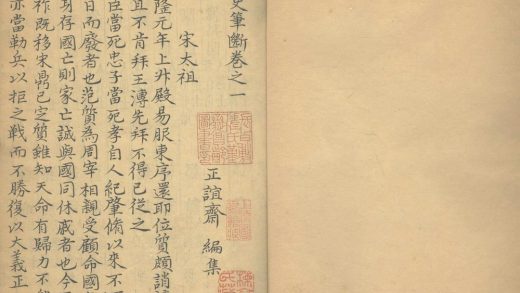 史筆斷卷之一
正誼齋 編集
宋太祖
隆元年上升殿易服東序還即位質頗誚讓
且不肯拜王溥先拜不得已從之
臣當死忠子當死孝自人紀肇脩以來不
日而廢者也范質為周宰相親受顧命國
身存國亡則家亡誠與國同休戚者也今
祚既移宋鼎已定質雖知天命有歸力不能
亦當勒兵以拒之戰而不勝復以大義正